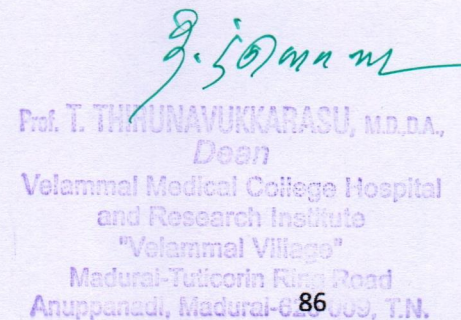 Prof. T. THIRUNAVUKKARASU, M.D.,D.A.,
Dean
Velammal Medical College Hospital
and Research Institute
"Velammal Village"
Madurai-Tuticorin Ring Road
Anuppanadi, Madurai-625 009, T.N.
86